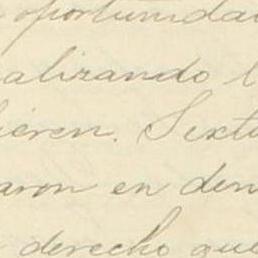 oportunidad
alizando l
ieren. Sexto
aron en den
derecho que